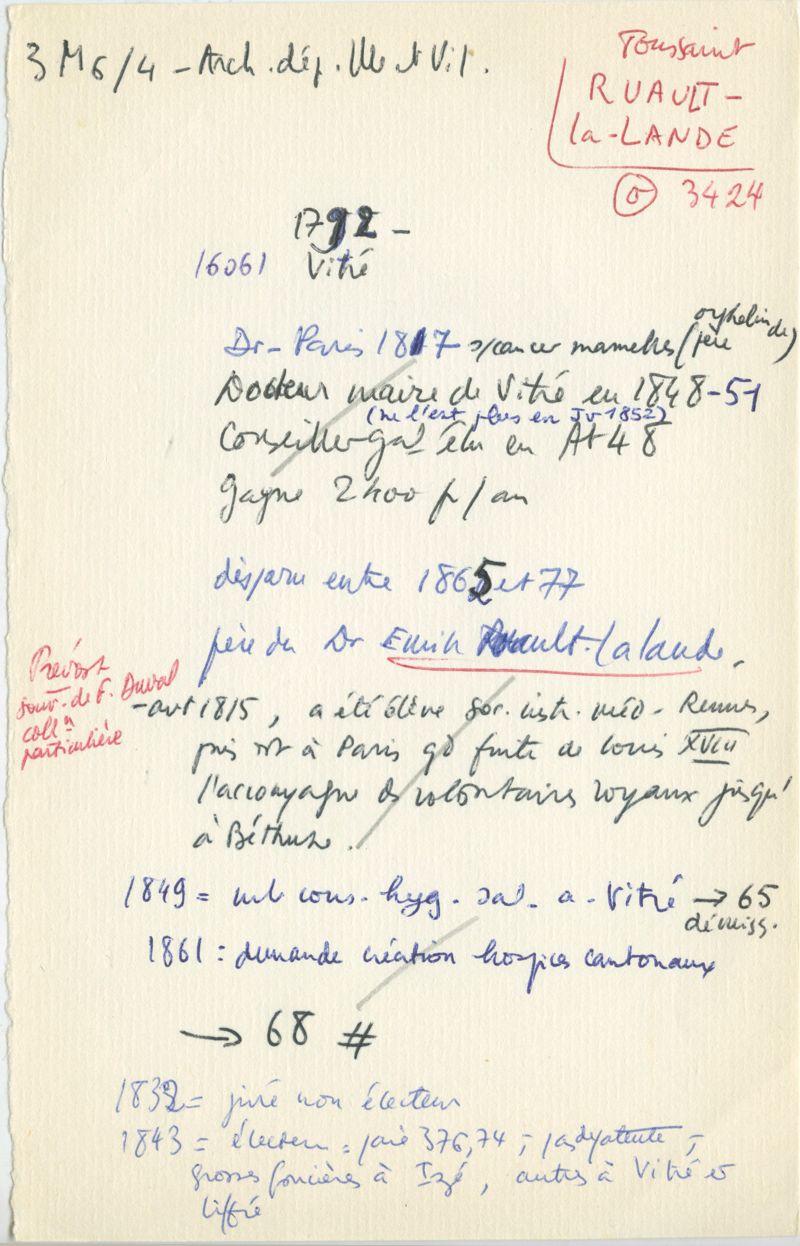 3 M 6/4 - Arch. dép. Ille et Vil.
Toussaint
RUAULT-
la-LANDE
3424
1792 -
16061 Vitré
Dr - Paris 1817 s/cancer mamelles (orphelin de père)
Docteur maire de Vitré en 1848-51
(ne l'est plus en Jr 1852)
Conseiller gal élu en At 48
gagne 2400 f/an
disparu entre 1865 et 77
père du Dr Emile Ruault-Lalande.
Prévost
souv. de F. Duval
colln
particulière
- avt 1815, a été élève Ec. instr. méd. Rennes,
puis est à Paris qd fuite de Louis XVIII
l'accompagne ds volontaires royaux jusqu'
à Béthune.
1849 = mb cons. hyg. sal. a. Vitré → 65
démiss.
1861 : demande création hospices cantonaux
→ 68 #
1832 = juré non électeur
1843 = électeur = paie 376,74 ; pas de patente ;
grosses foncières à Izé, autres à Vitré et
Liffré